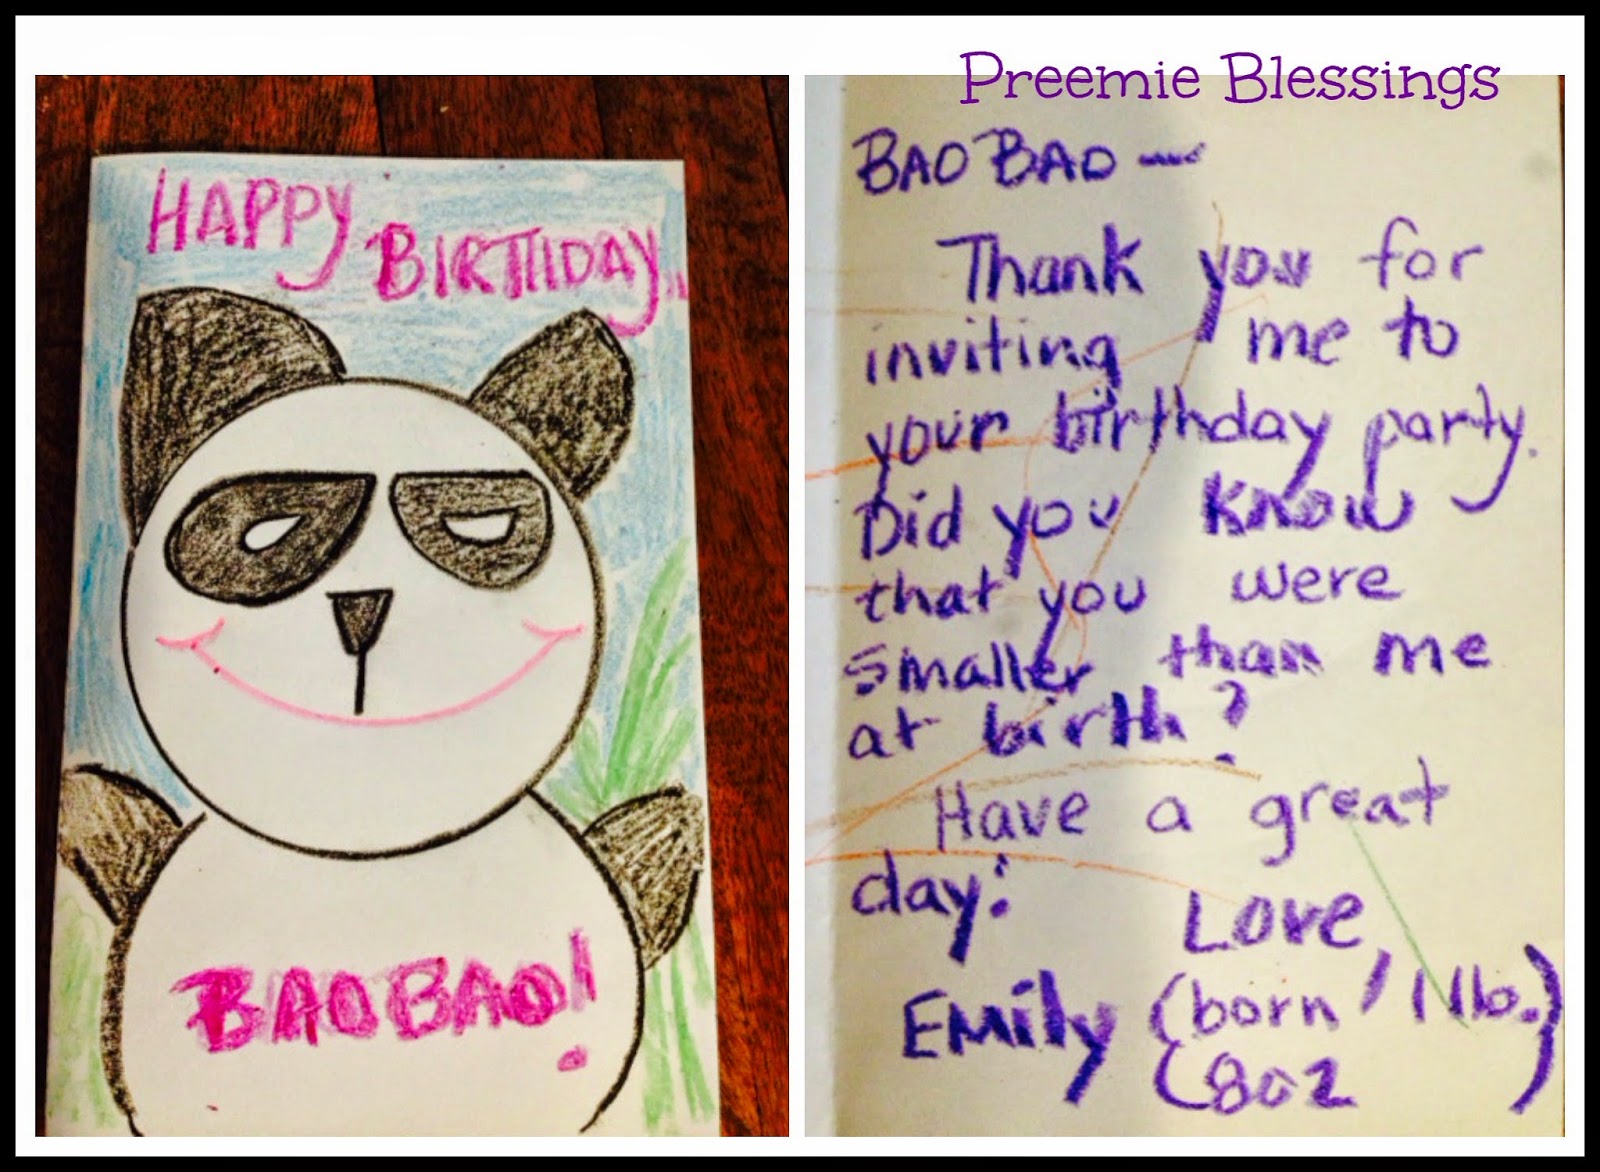 Preemie Blessings
HAPPY
BIRTHDAY..
BAOBAO!
BAO BAO —
Thank you for
inviting me to
your birthday party.
Did you know
that you were
smaller than me
at birth?
Have a great
day!
Love,
Emily (born 1 lb.)
(8oz